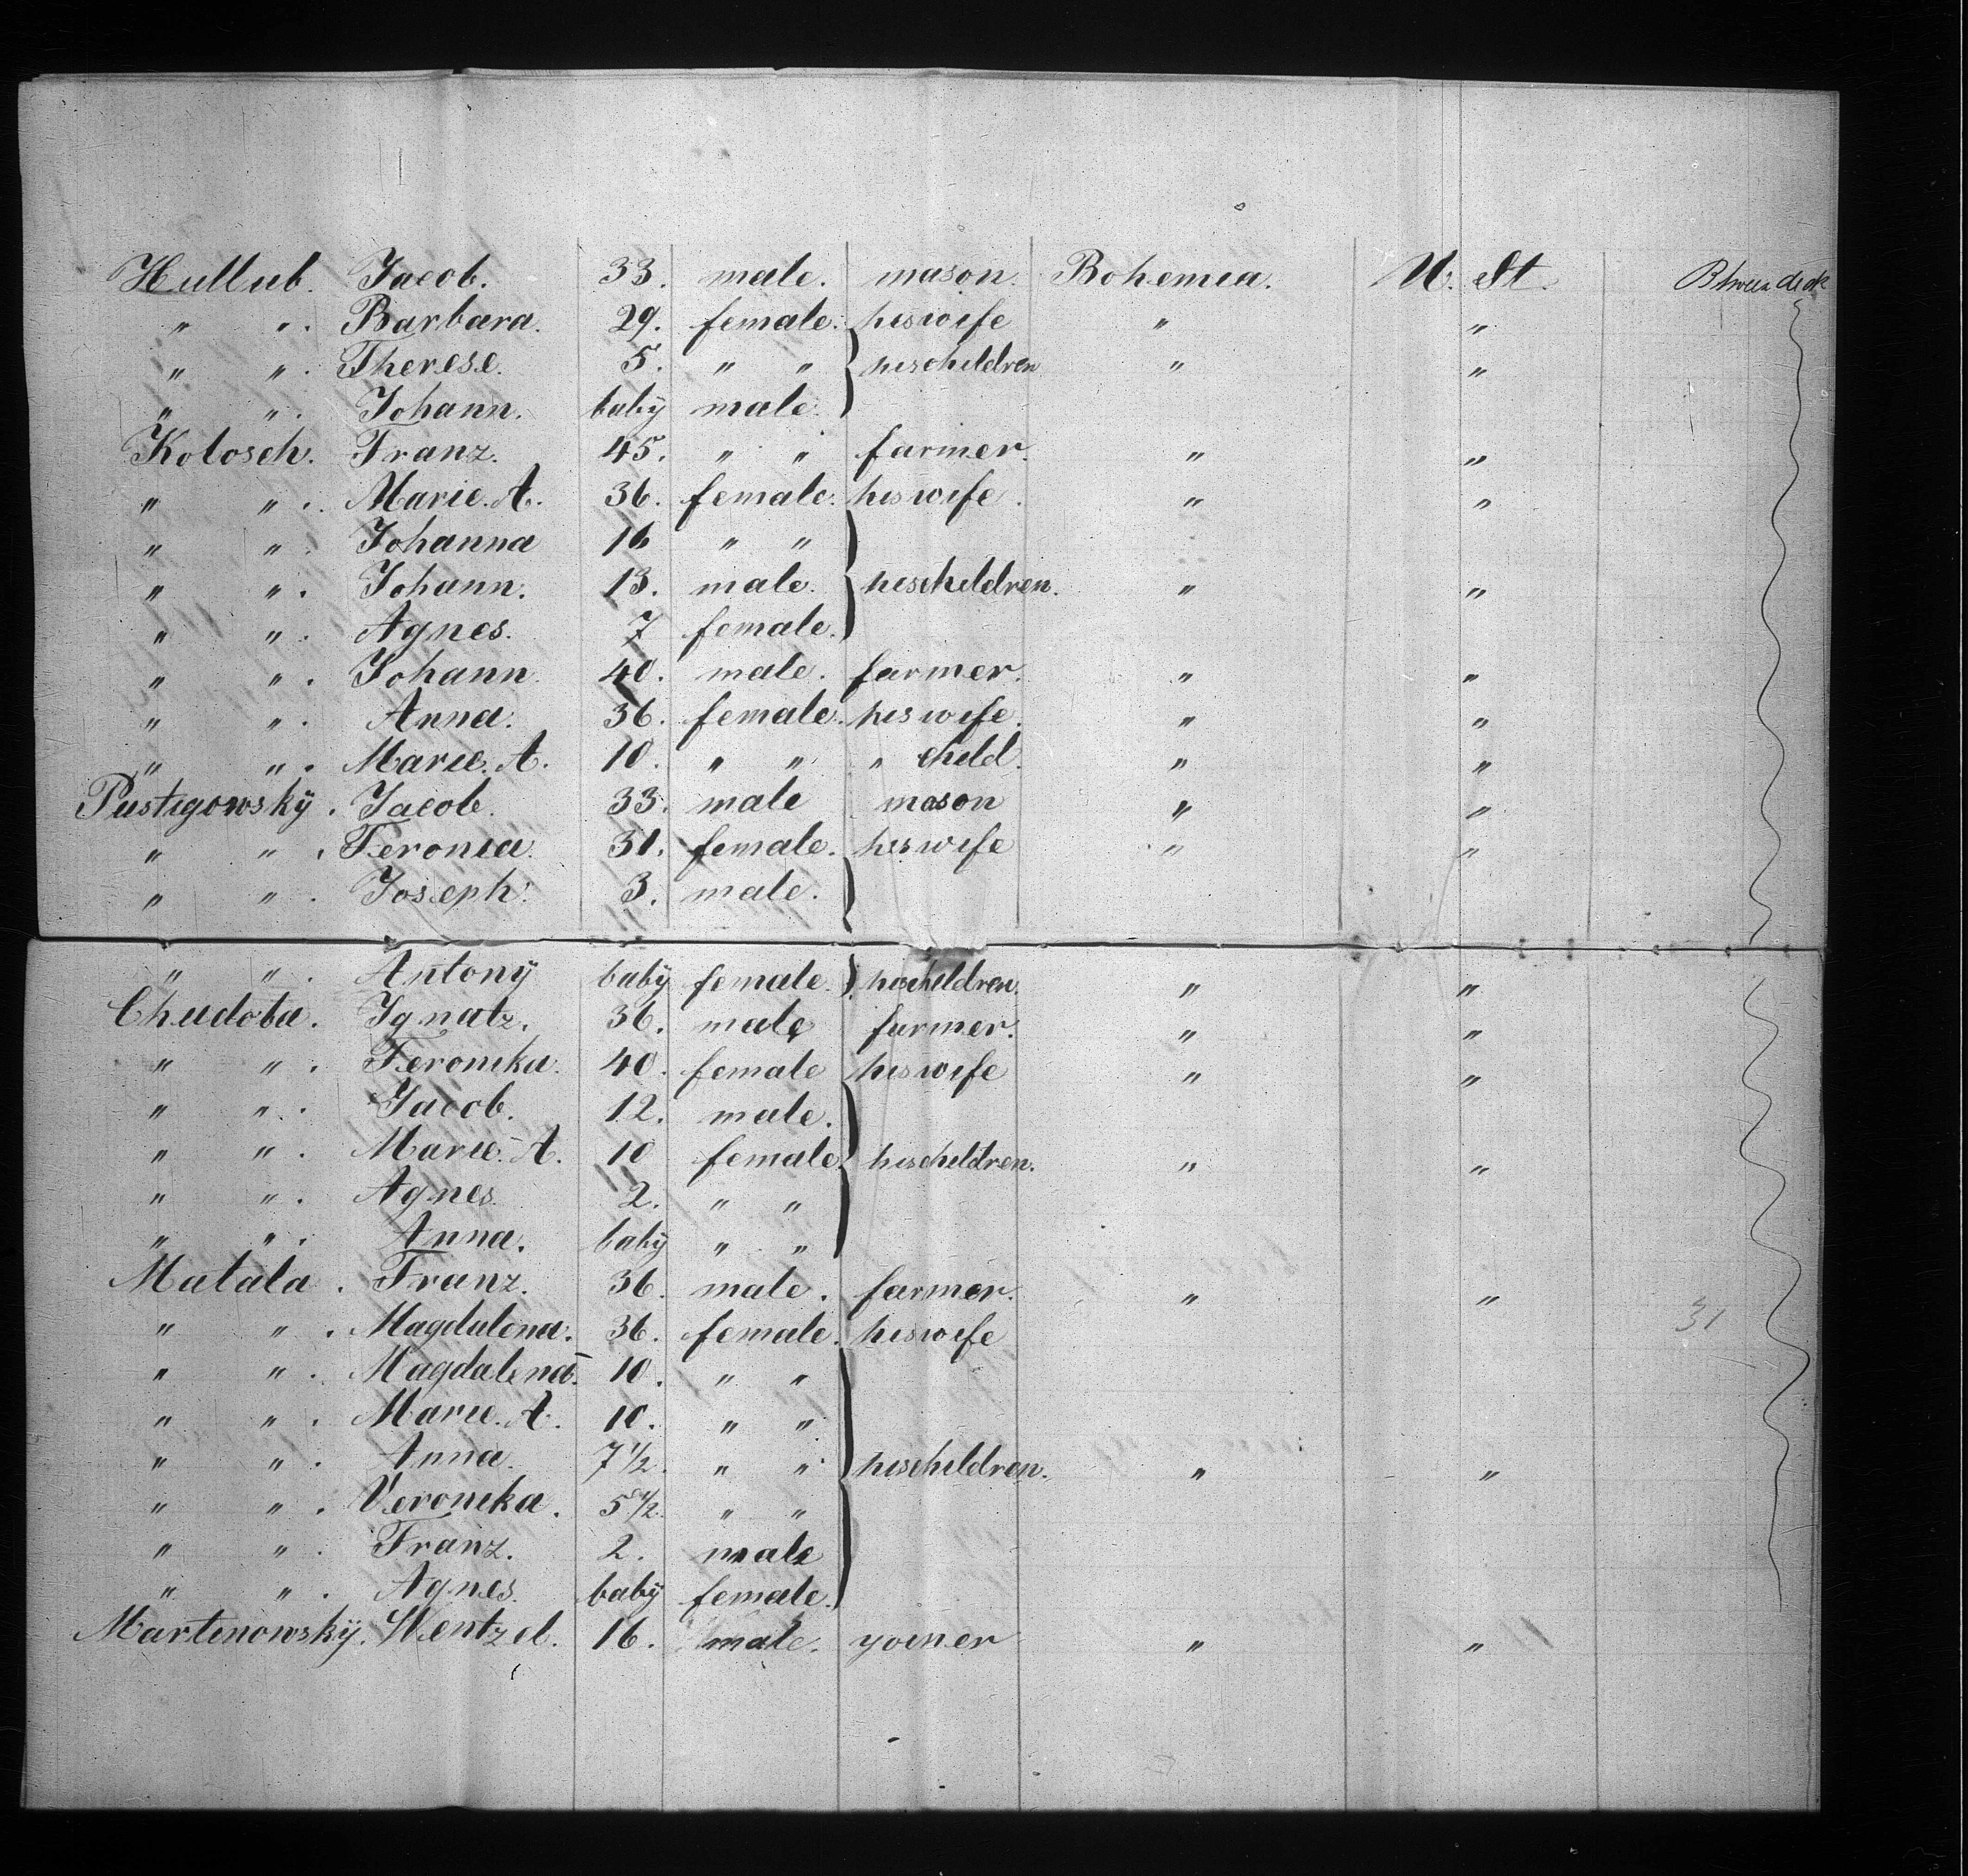 Hullub. Jacob. 33. male. mason. Bohemia. U. St. Btween deck
" " . Barbara. 29. female. his wife " "
" " . Therese. 5. " " } his children " "
" " . Johann. baby male. }
Kolosch. Franz. 45. " " farmer. " "
" " . Marie. A. 36. female. his wife. " "
" " . Johanna 16 " " }
" " . Johann. 13. male. } his children. " "
" " . Agnes. 7 female. }
" " . Johann. 40. male. farmer. " "
" " . Anna. 36. female. his wife. " "
" " . Marie. A. 10. " " " child. " "
Pustigowskÿ. Jacob. 33. male mason " "
" " . Feronia. 31. female. his wife " "
" " . Joseph. 3. male. }
" " . Antonÿ baby female. } his children. " "
Chudoba. Ignatz. 36. male farmer. " "
" " . Feronika. 40. female his wife " "
" " . Jacob. 12. male. }
" " . Marie. A. 10 female. } his children. " "
" " . Agnes. 2. " " }
" " . Anna. baby " " }
Matala. Franz. 36. male. farmer. " " 31
" " . Magdalena. 36. female. his wife
" " . Magdalena. 10. " " }
" " . Marie. A. 10. " " }
" " . Anna. 7 1/2. " " } his children. " "
" " . Veronika. 5 1/2. " " }
" " . Franz. 2. male }
" " . Agnes. baby female. }
Martinowskÿ. Wentzel. 16. male. yoiner " "